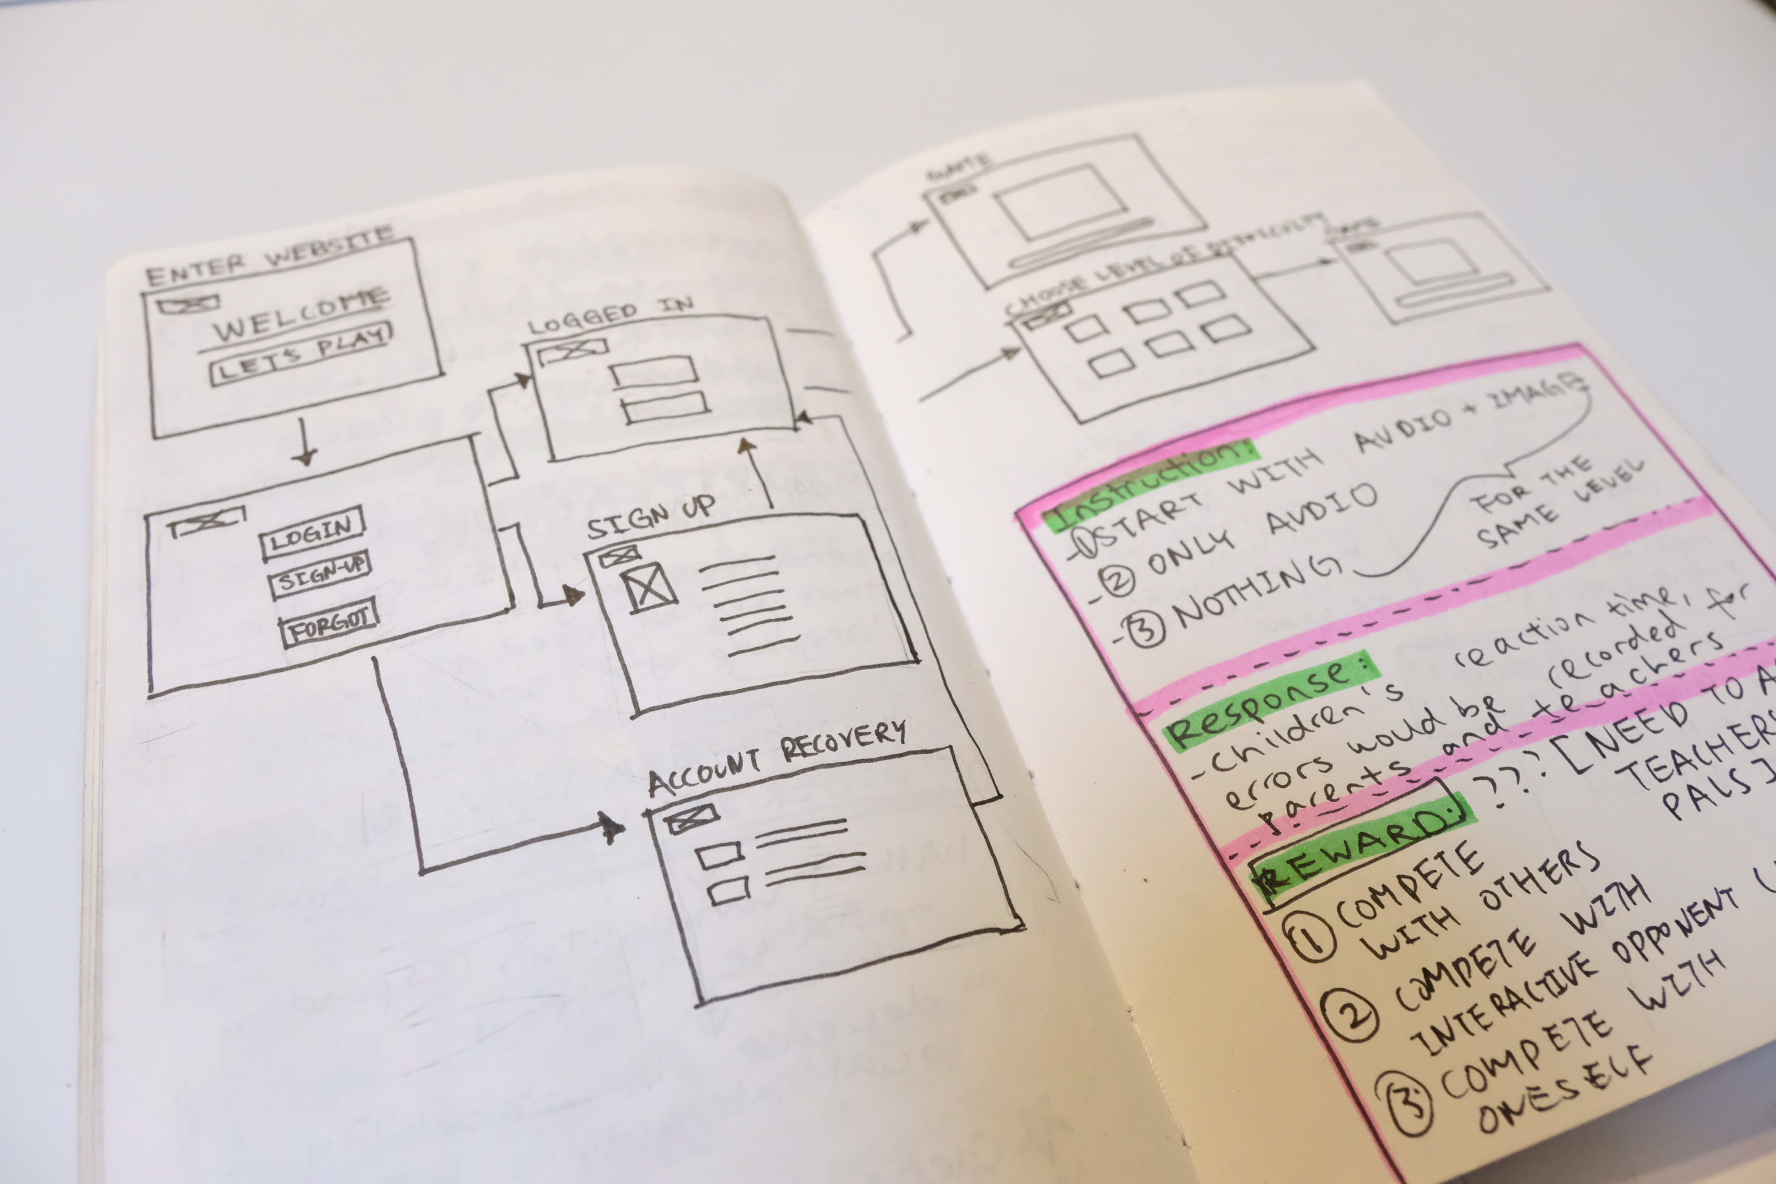 ENTER WEBSITE
WELCOME
LET'S PLAY
LOGIN
SIGN-UP
FORGOT
LOGGED IN
SIGN UP
ACCOUNT RECOVERY
GAME
CHOOSE LEVEL OF DIFFICULTY
GAME
Instruction:
-① START WITH AUDIO + IMAGE
-② ONLY AUDIO
-③ NOTHING
FOR THE
SAME LEVEL
Response:
-Children's reaction time,
errors would be recorded for
parents and teachers
REWARD: ??? [NEED TO
TEACHERS
PALS]
① COMPETE
WITH OTHERS
② COMPETE WITH
INTERACTIVE OPPONENT
③ COMPETE WITH
ONESELF